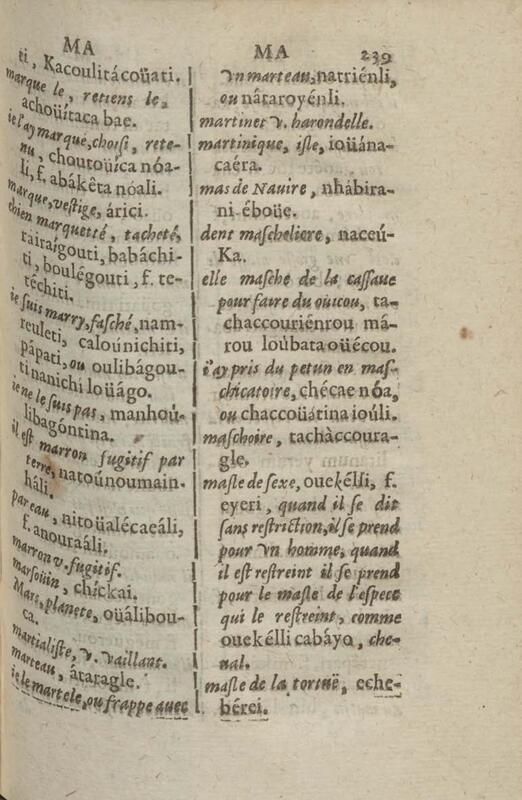 MA
ti, Kacoulitácoüati.
marque le, retiens le,
achoüitaca bae.
ie l'ay marqué, choisi, rete-
nu, choutoüíca nóa-
li, f. abákêta nóali.
marque, vestige, árici.
chien marquetté, tacheté,
rairaígouti, babáchi-
ti, boulégouti, f. te-
téchiti.
ie suis marry, fasché, nam-
reuleti, caloúnichiti,
pápati, ou oulibágou-
ti nanichi loüágo.
ie ne le suis pas, manhoú-
libagóntina.
il est marron fugitif par
terre, natoúnoumain-
háli.
par eau, nitoüalécaeáli,
f. anouraáli.
marron v. fugitif.
marsoüin, chíckai.
Mars, planete, oüálibou-
ca.
martialiste, v. vaillant.
marteau, átaragle.
ie le martele, ou frappe avec
MA 239
vn marteau, natriénli,
ou nátaroyénli.
martinet v. harondelle.
martinique, isle, ioüána-
caéra.
mas de Nauire, nhábira-
ni éboüe.
dent mascheliere, naceú-
Ka.
elle masche de la cassaue
pour faire du oüicou, ta-
chaccouriénrou má-
rou loúbata oüécou.
i'ay pris du petun en mas-
chicatoire, chécae nóa,
ou chaccoüátina ioúli.
maschoire, tachàccoura-
gle.
masle de sexe, ouekélli, f.
eyeri, quand il se dit
sans restriction, il se prend
pour vn homme, quand
il est restreint il se prend
pour le masle de l'espece
qui le restreint, comme
ouekélli cabáyo, che-
ual.
masle de la tortuë, eche-
bérei.